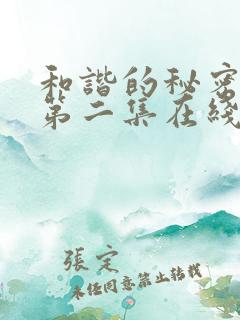 和諧的秘密
第二集在綫
張定
未经同意禁止转载